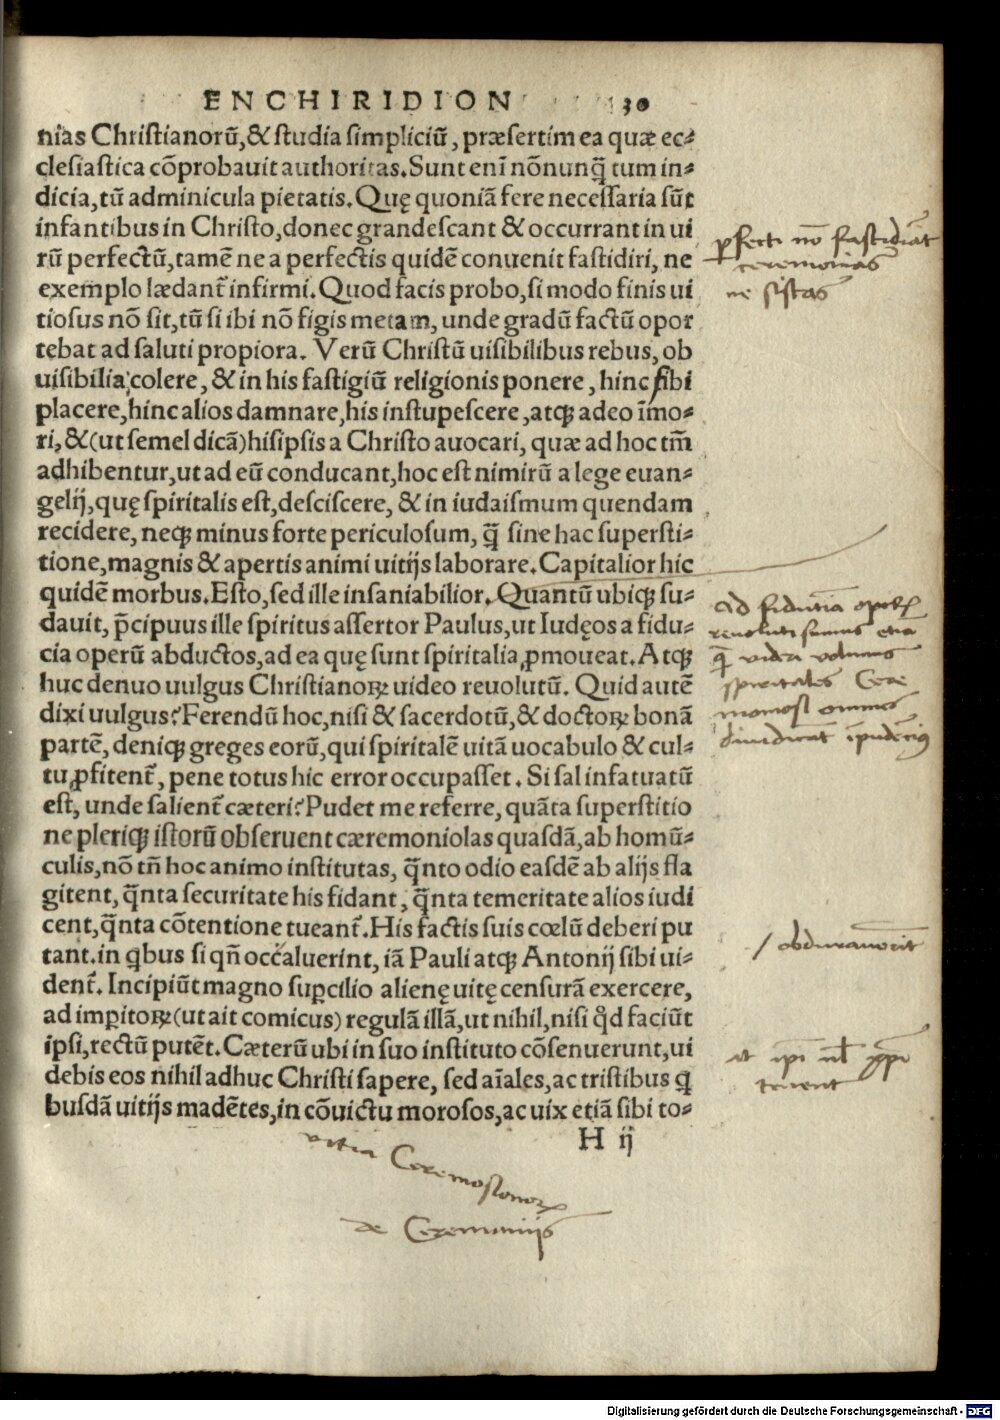 ENCHIRIDION 30
nias Christianorū,& studia simpliciū, præsertim ea quæ ec-
clesiastica cōprobauit authoritas. Sunt enī nōnunq̃ tum in-
dicia, tū adminicula pietatis. Quę quoniā fere necessaria sūt
infantibus in Christo, donec grandescant & occurrant in ui
rū perfectū, tamē ne a perfectis quidē conuenit fastidiri, ne
exemplo lædant᷑ infirmi. Quod facis probo, si modo finis ui
tiosus nō sit, tū si ibi nō figis metam, unde gradū factū opor
tebat ad saluti propiora. Verū Christū uisibilibus rebus, ob
uisibilia colere, & in his fastigiū religionis ponere, hinc sibi
placere, hinc alios damnare, his instupescere, atqꝫ adeo īmo-
ri, &(ut semel dicā) hisipsis a Christo auocari, quæ ad hoc tm̄
adhibentur, ut ad eū conducant, hoc est nimirū a lege euan-
gelij, quę spiritalis est, desciscere, & in iudaismum quendam
recidere, neqꝫ minus forte periculosum, q̃ sine hac supersti-
tione, magnis & apertis animi uitijs laborare. Capitalior hic
quidē morbus. Esto, sed ille insaniabilior. Quantū ubiqꝫ su-
dauit, p̄cipuus ille spiritus assertor Paulus, ut Iudęos a fidu-
cia operū abductos, ad ea quę sunt spiritalia ꝓmoueat. Atqꝫ
huc denuo uulgus Christianoꝝ uideo reuolutū. Quid autē
dixi uulgus? Ferendū hoc, nisi & sacerdotū, & doctoꝝ bonā
partē, deniqꝫ greges eorū, qui spiritalē uitā uocabulo & cul-
tu ꝓfitent᷑, pene totus hic error occupasset. Si sal infatuatū
est, unde salient᷑ cæteri? Pudet me referre, quāta superstitio
ne pleriqꝫ istorū obseruent cæremoniolas quasdā, ab homū-
culis, nō tn̄ hoc animo institutas, q̃nto odio easdē ab alijs fla
gitent, q̃nta securitate his fidant, q̃nta temeritate alios iudi
cent, q̃nta cōtentione tueant᷑. His factis suis cœlū deberi pu
tant. in qbus si qñ occaluerint, iā Pauli atqꝫ Antonij sibi ui-
dent᷑. Incipiūt magno suꝑcilio alienę uitę censurā exercere,
ad imꝑitoꝝ (ut ait comicus) regulā illā, ut nihil, nisi qd̄ faciūt
ipsi, rectū putēt. Cæterū ubi in suo instituto cōsenuerunt, ui
debis eos nihil adhuc Christi sapere, sed aīales, ac tristibus q
busdā uitijs madētes, in cōuictu morosos, ac uix etiā sibi to-
H ij
ꝑfecti nō fastidiāt
ceremonias
ad fidutiā opeꝝ
reuoluti sumus etiā
q̃ videri volumus
spirituales
omnes
obdurauerīt
vitia
de Ceremoniis
Digitalisierung gefördert durch die Deutsche Forschungsgemeinschaft - DFG